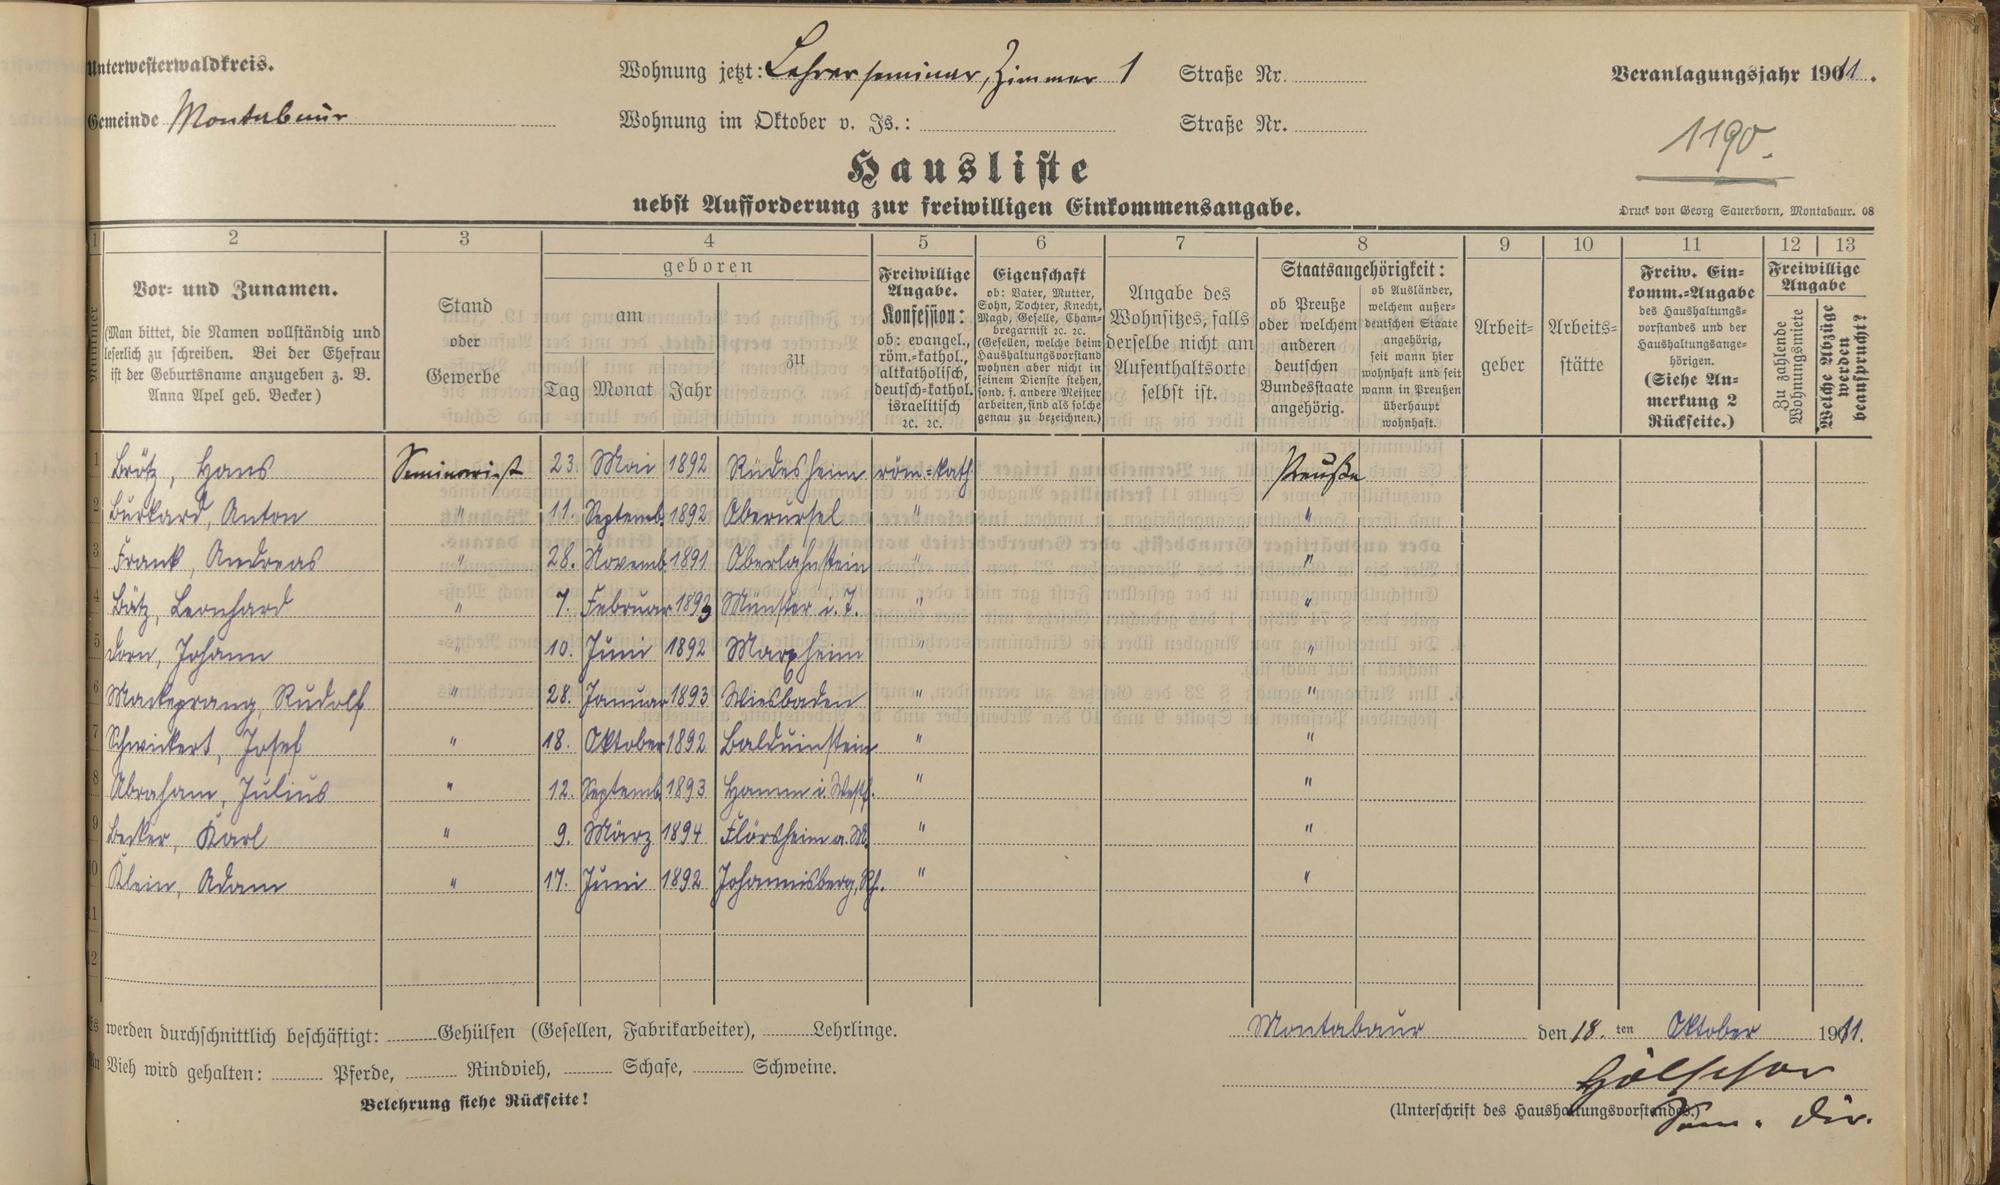 Unterwesterwaldkreis.
Wohnung jetzt: Lehrerseminar, Zimmer 1 Straße Nr.
Veranlagungsjahr 1911.
Gemeinde Montabaur
Wohnung im Oktober v. Js.: Straße Nr.
1190.
Hausliste
nebst Aufforderung zur freiwilligen Einkommensangabe.
Druck von Georg Sauerborn, Montabaur. 08
1 2 3 4 5 6 7 8 9 10 11 12 13
Nummer
Vor- und Zunamen.
(Man bittet, die Namen vollständig und
leserlich zu schreiben. Bei der Ehefrau
ist der Geburtsname anzugeben z. B.
Anna Apel geb. Becker)
Stand
oder
Gewerbe
geboren
am
Tag Monat Jahr
zu
Freiwillige
Angabe.
Konfession:
ob: evangel.,
röm.-kathol.,
altkatholisch,
deutsch-kathol.
israelitisch
2c. 2c.
Eigenschaft
ob: Vater, Mutter,
Sohn, Tochter, Knecht,
Magd, Geselle, Cham-
bregarnist 2c. 2c.
(Gesellen, welche beim
Haushaltungsvorstand
wohnen aber nicht in
seinem Dienste stehen,
sond. f. andere Meister
arbeiten, sind als solche
genau zu bezeichnen.)
Angabe des
Wohnsitzes, falls
derselbe nicht am
Aufenthaltsorte
selbst ist.
Staatsangehörigkeit:
ob Preuße
oder welchem
anderen
deutschen
Bundesstaate
angehörig.
ob Ausländer,
welchem außer-
deutschen Staate
angehörig,
seit wann hier
wohnhaft und seit
wann in Preußen
überhaupt
wohnhaft.
Arbeit-
geber
Arbeits-
stätte
Freiw. Ein-
komm.-Angabe
des Haushaltungs-
vorstandes und der
Haushaltungsange-
hörigen.
(Siehe An-
merkung 2
Rückseite.)
Freiwillige
Angabe
Zu zahlende
Wohnungsmiete
Welche Abzüge
werden
beansprucht?
1 Brötz, Hans Seminarist 23. Mai 1892 Rüdesheim röm=kath. Preuße
2 Burkard, Anton " 11. Septemb. 1892 Oberursel " "
3 Frank, Andreas " 28. Novemb. 1891 Oberlahnstein " "
4 Bätz, Leonhard " 7. Februar 1893 Münster i. T. " "
5 Dorn, Johann " 10. Juni 1892 Marxheim " "
6 Mackeprang, Rudolf " 28. Januar 1893 Wiesbaden " "
7 Schwickert, Josef " 18. Oktober 1892 Balduinstein " "
8 Abraham, Julius " 12. Septemb. 1893 Hamm i. Westf. " "
9 Becker, Karl " 9. März 1894 Flörsheim a. M. " "
10 Klein, Adam " 17. Juni 1892 Johannisberg, Rh. " "
11
12
Es werden durchschnittlich beschäftigt: Gehülfen (Gesellen, Fabrikarbeiter), Lehrlinge.
Montabaur den 18. ten Oktober 1911.
An Vieh wird gehalten: Pferde, Rindvieh, Schafe, Schweine.
Hölscher
Belehrung siehe Rückseite!
(Unterschrift des Haushaltungsvorstandes.)
Sem. Dir.